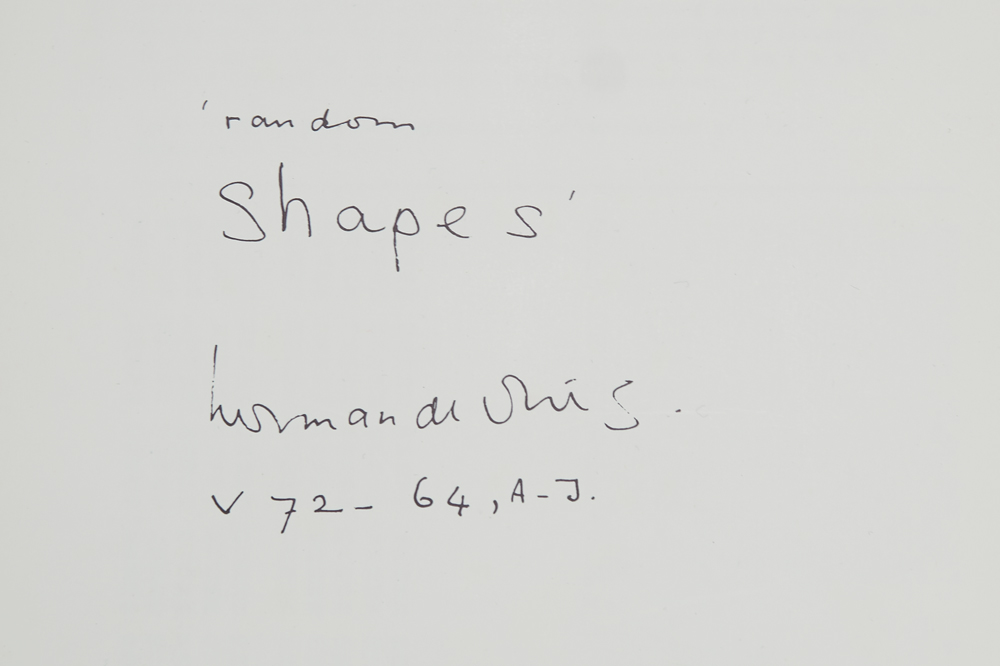 'random
shapes'
herman de vries.
V 72 - 64, A-J.